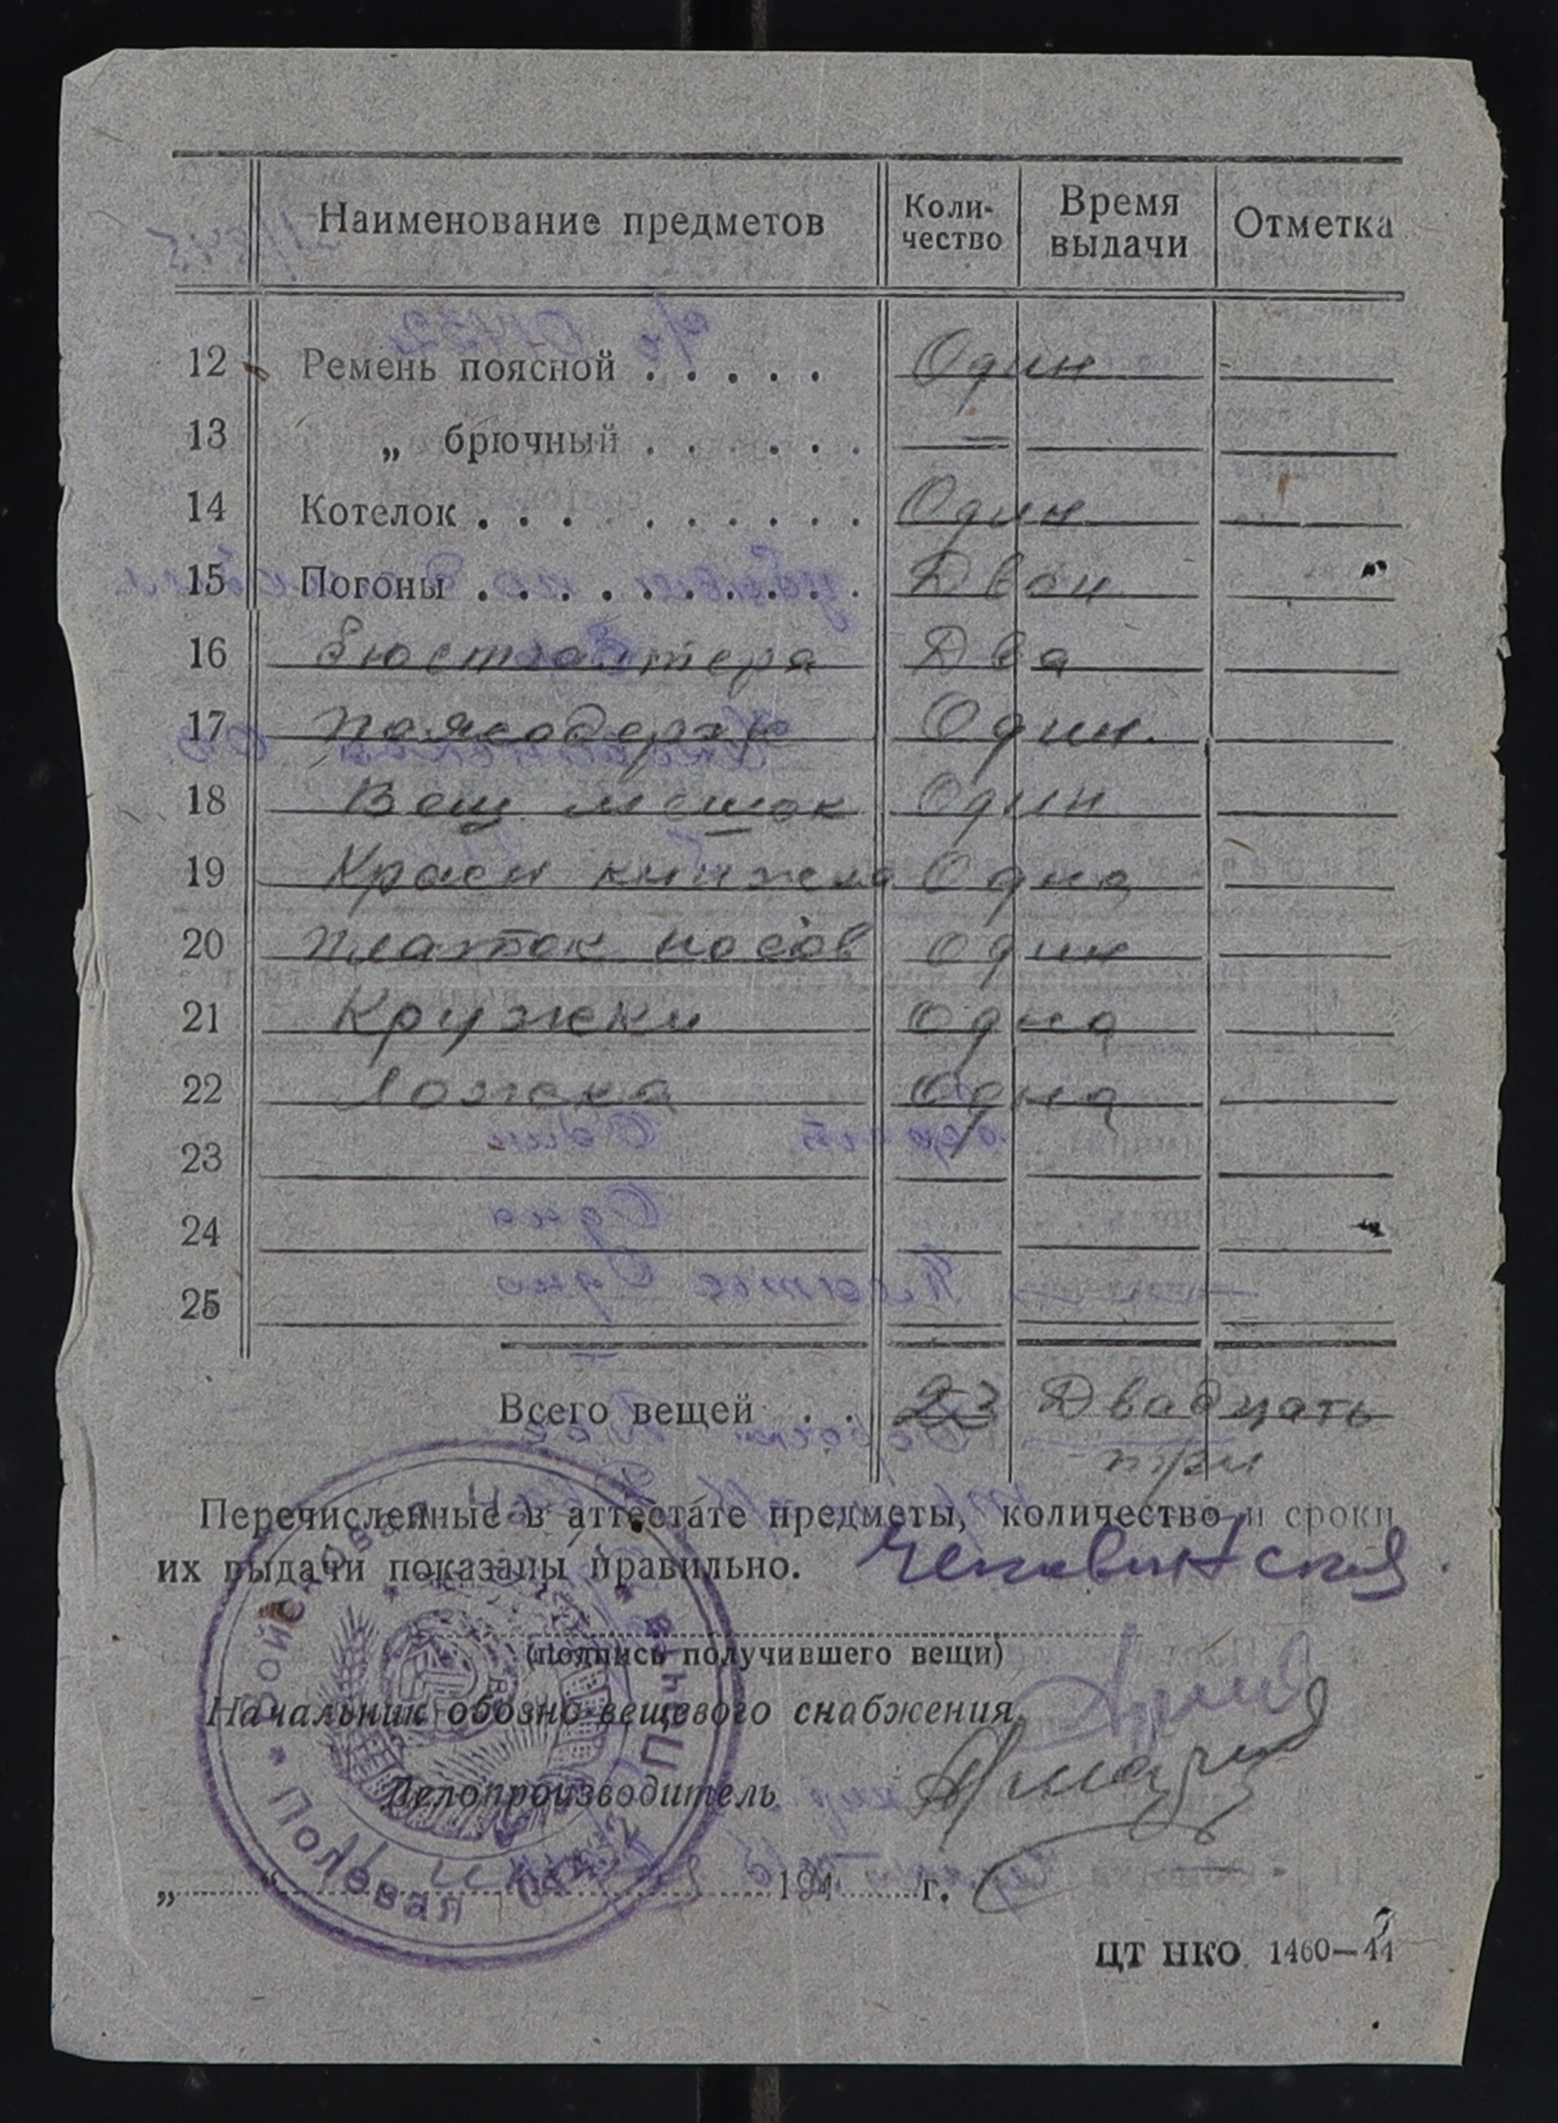 Наименование предметов Коли- Время Отметка
чество выдачи
12 Ремень поясной . . . . . Один
13 „ брючный . . . . . . —
14 Котелок . . . . . . . . . Один
15 Погоны . . . . . . . . . . . Двои
16 Бюстгалтера Два
17 Поясодерж Один.
18 Вещ мешок Один
19 Красн книжка Одна
20 Платок носов один
21 Кружки одна
22 Ложка одна
23
24
25
Всего вещей . . 23 Двадцать
три
Перечисленные в аттестате предметы, количество и сроки
их выдачи показаны правильно. Чекавинская.
(подпись получившего вещи)
Начальник обозно-вещевого снабжения
Делопроизводитель
„ “ 194 г.
ЦТ НКО 1460—44
Войсковая часть * Полевая